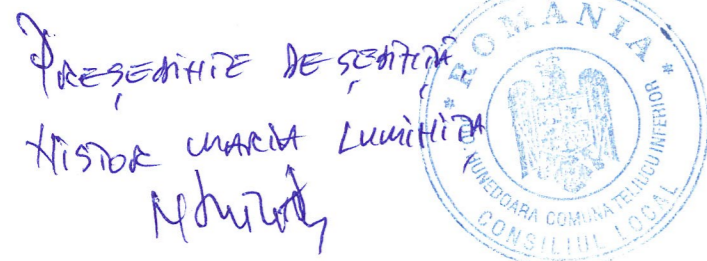 PREȘEDINTE DE ȘEDINȚĂ,
NISTOR MARIA LUMINIȚA
* ROMANIA *
HUNEDOARA COMUNA TELIUCU INFERIOR
CONSILIUL LOCAL